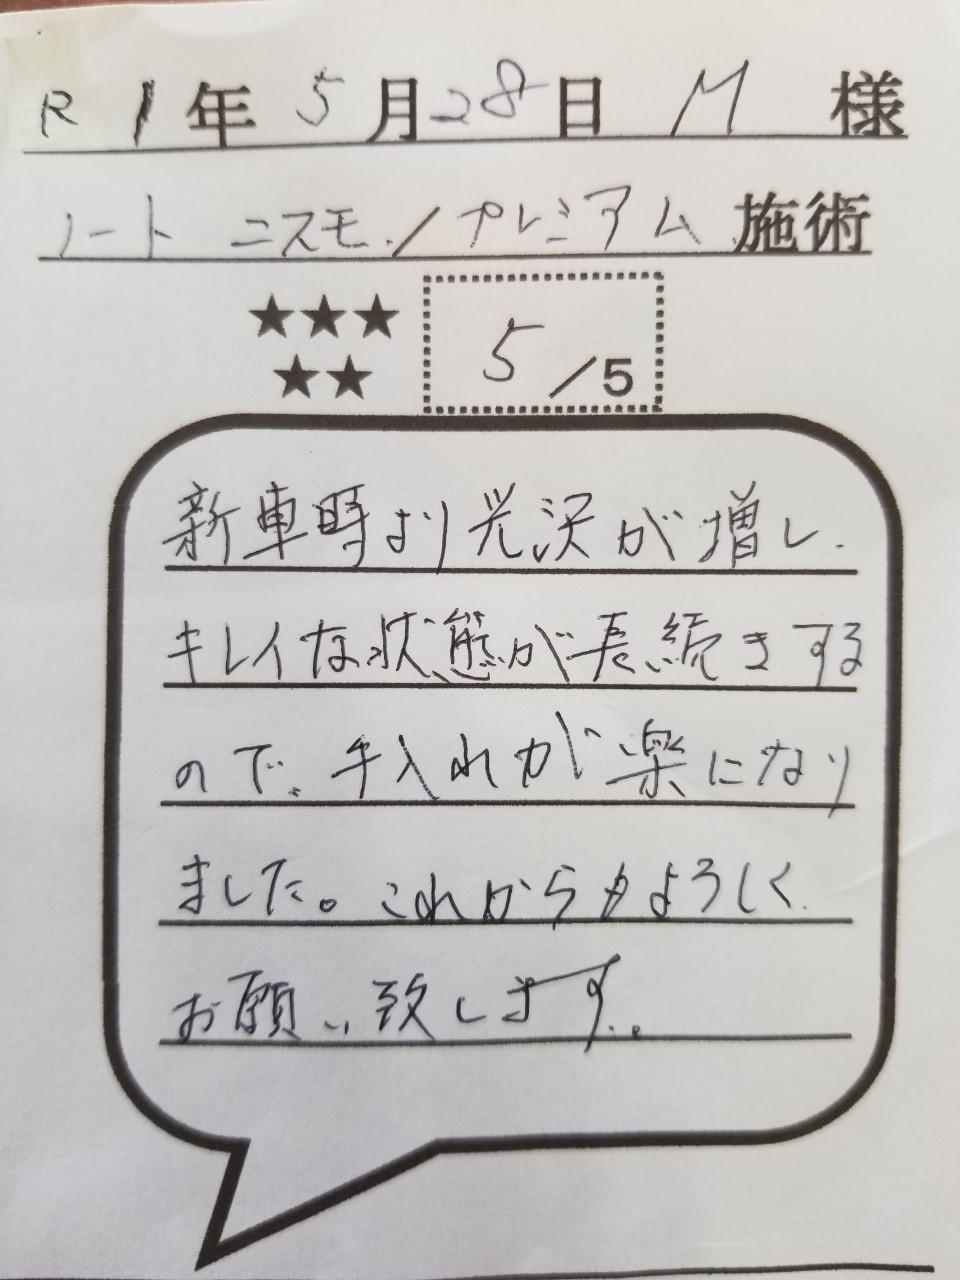 R 1年 5月28日 M 様
ノート ニスモ/プレミアム 施術
★★★
★★
5/5
新車時より光沢が増し、
キレイな状態が長続きする
ので、手入れが楽になり
ました。これからもよろしく
お願い致します。